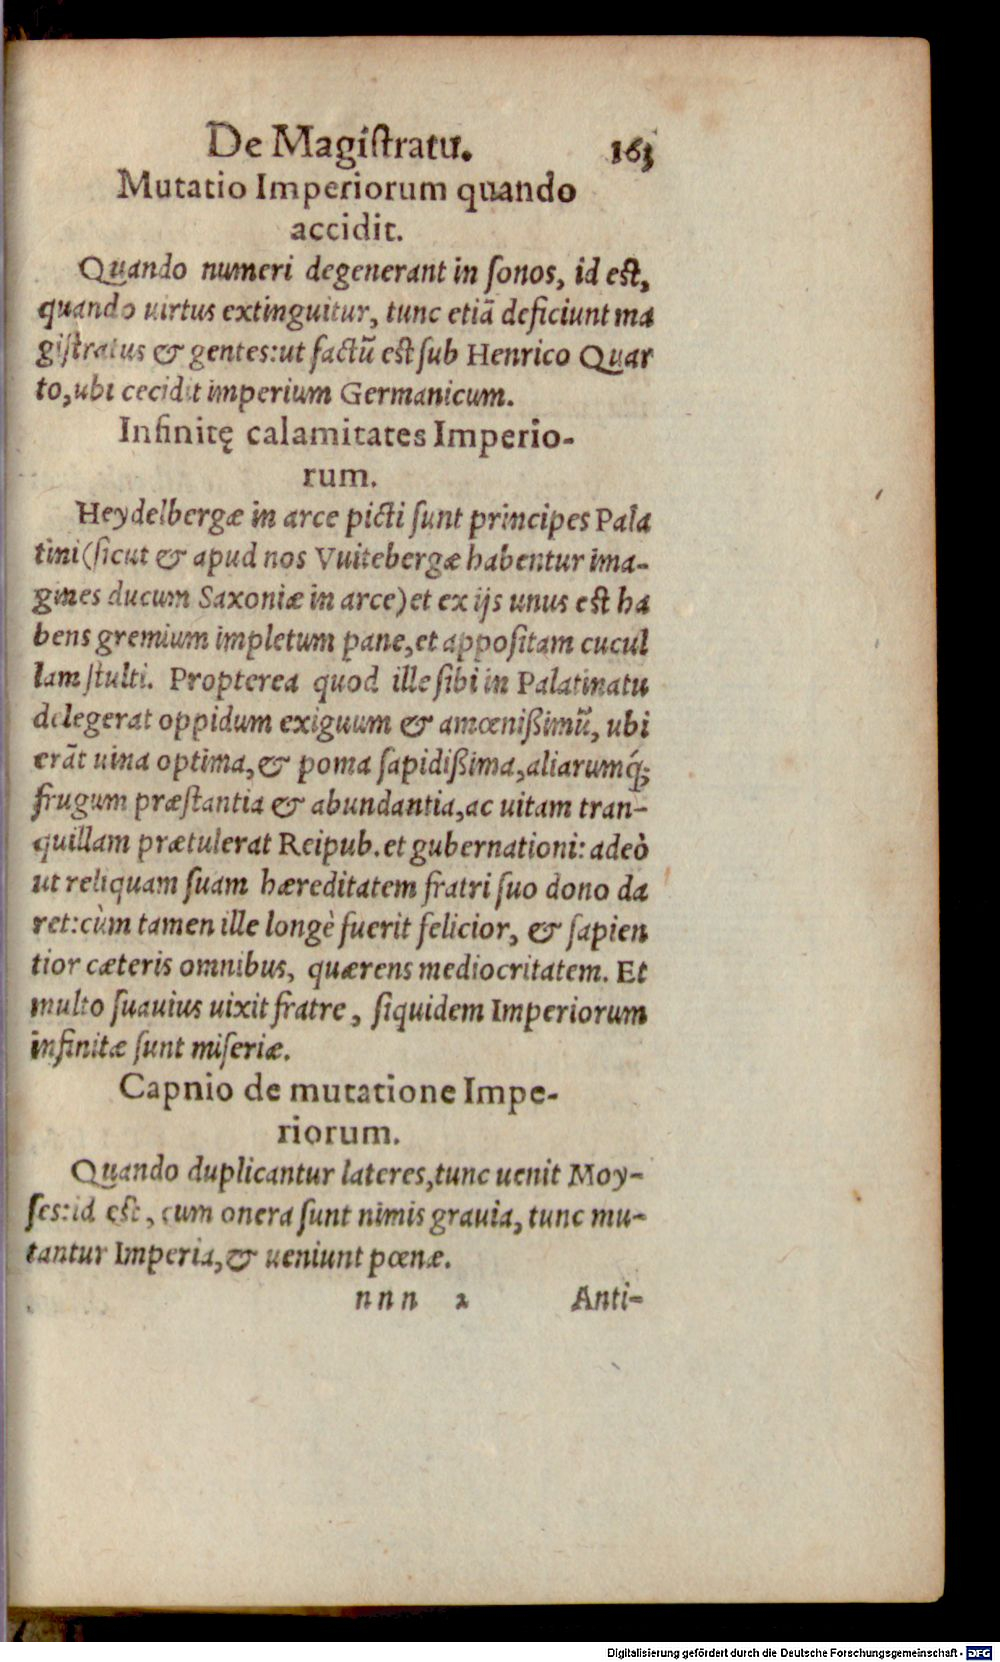 De Magistratu. 163
Mutatio Imperiorum quando
accidit.
Quando numeri degenerant in sonos, id est,
quando uirtus extinguitur, tunc etiā deficiunt ma
gistratus & gentes: ut factū est sub Henrico Quar
to, ubi cecidit imperium Germanicum.
Infinitę calamitates Imperio-
rum.
Heydelbergæ in arce picti sunt principes Pala
tini (sicut & apud nos Vuitebergæ habentur ima-
gines ducum Saxoniæ in arce) et ex ijs unus est ha
bens gremium impletum pane, et appositam cucul
lam stulti. Propterea quod ille sibi in Palatinatu
delegerat oppidum exiguum & amœnißimū, ubi
erāt uina optima, & poma sapidißima, aliarumq́;
frugum præstantia & abundantia, ac uitam tran-
quillam prætulerat Reipub. et gubernationi: adeò
ut reliquam suam hæreditatem fratri suo dono da
ret: cùm tamen ille longè fuerit felicior, & sapien
tior cæteris omnibus, quærens mediocritatem. Et
multo suauius uixit fratre, siquidem Imperiorum
infinitæ sunt miseriæ.
Capnio de mutatione Impe-
riorum.
Quando duplicantur lateres, tunc uenit Moy-
ses: id est, cum onera sunt nimis grauia, tunc mu-
tantur Imperia, & ueniunt pœnæ.
nnn 2 Anti-
Digitalisierung gefördert durch die Deutsche Forschungsgemeinschaft - DFG